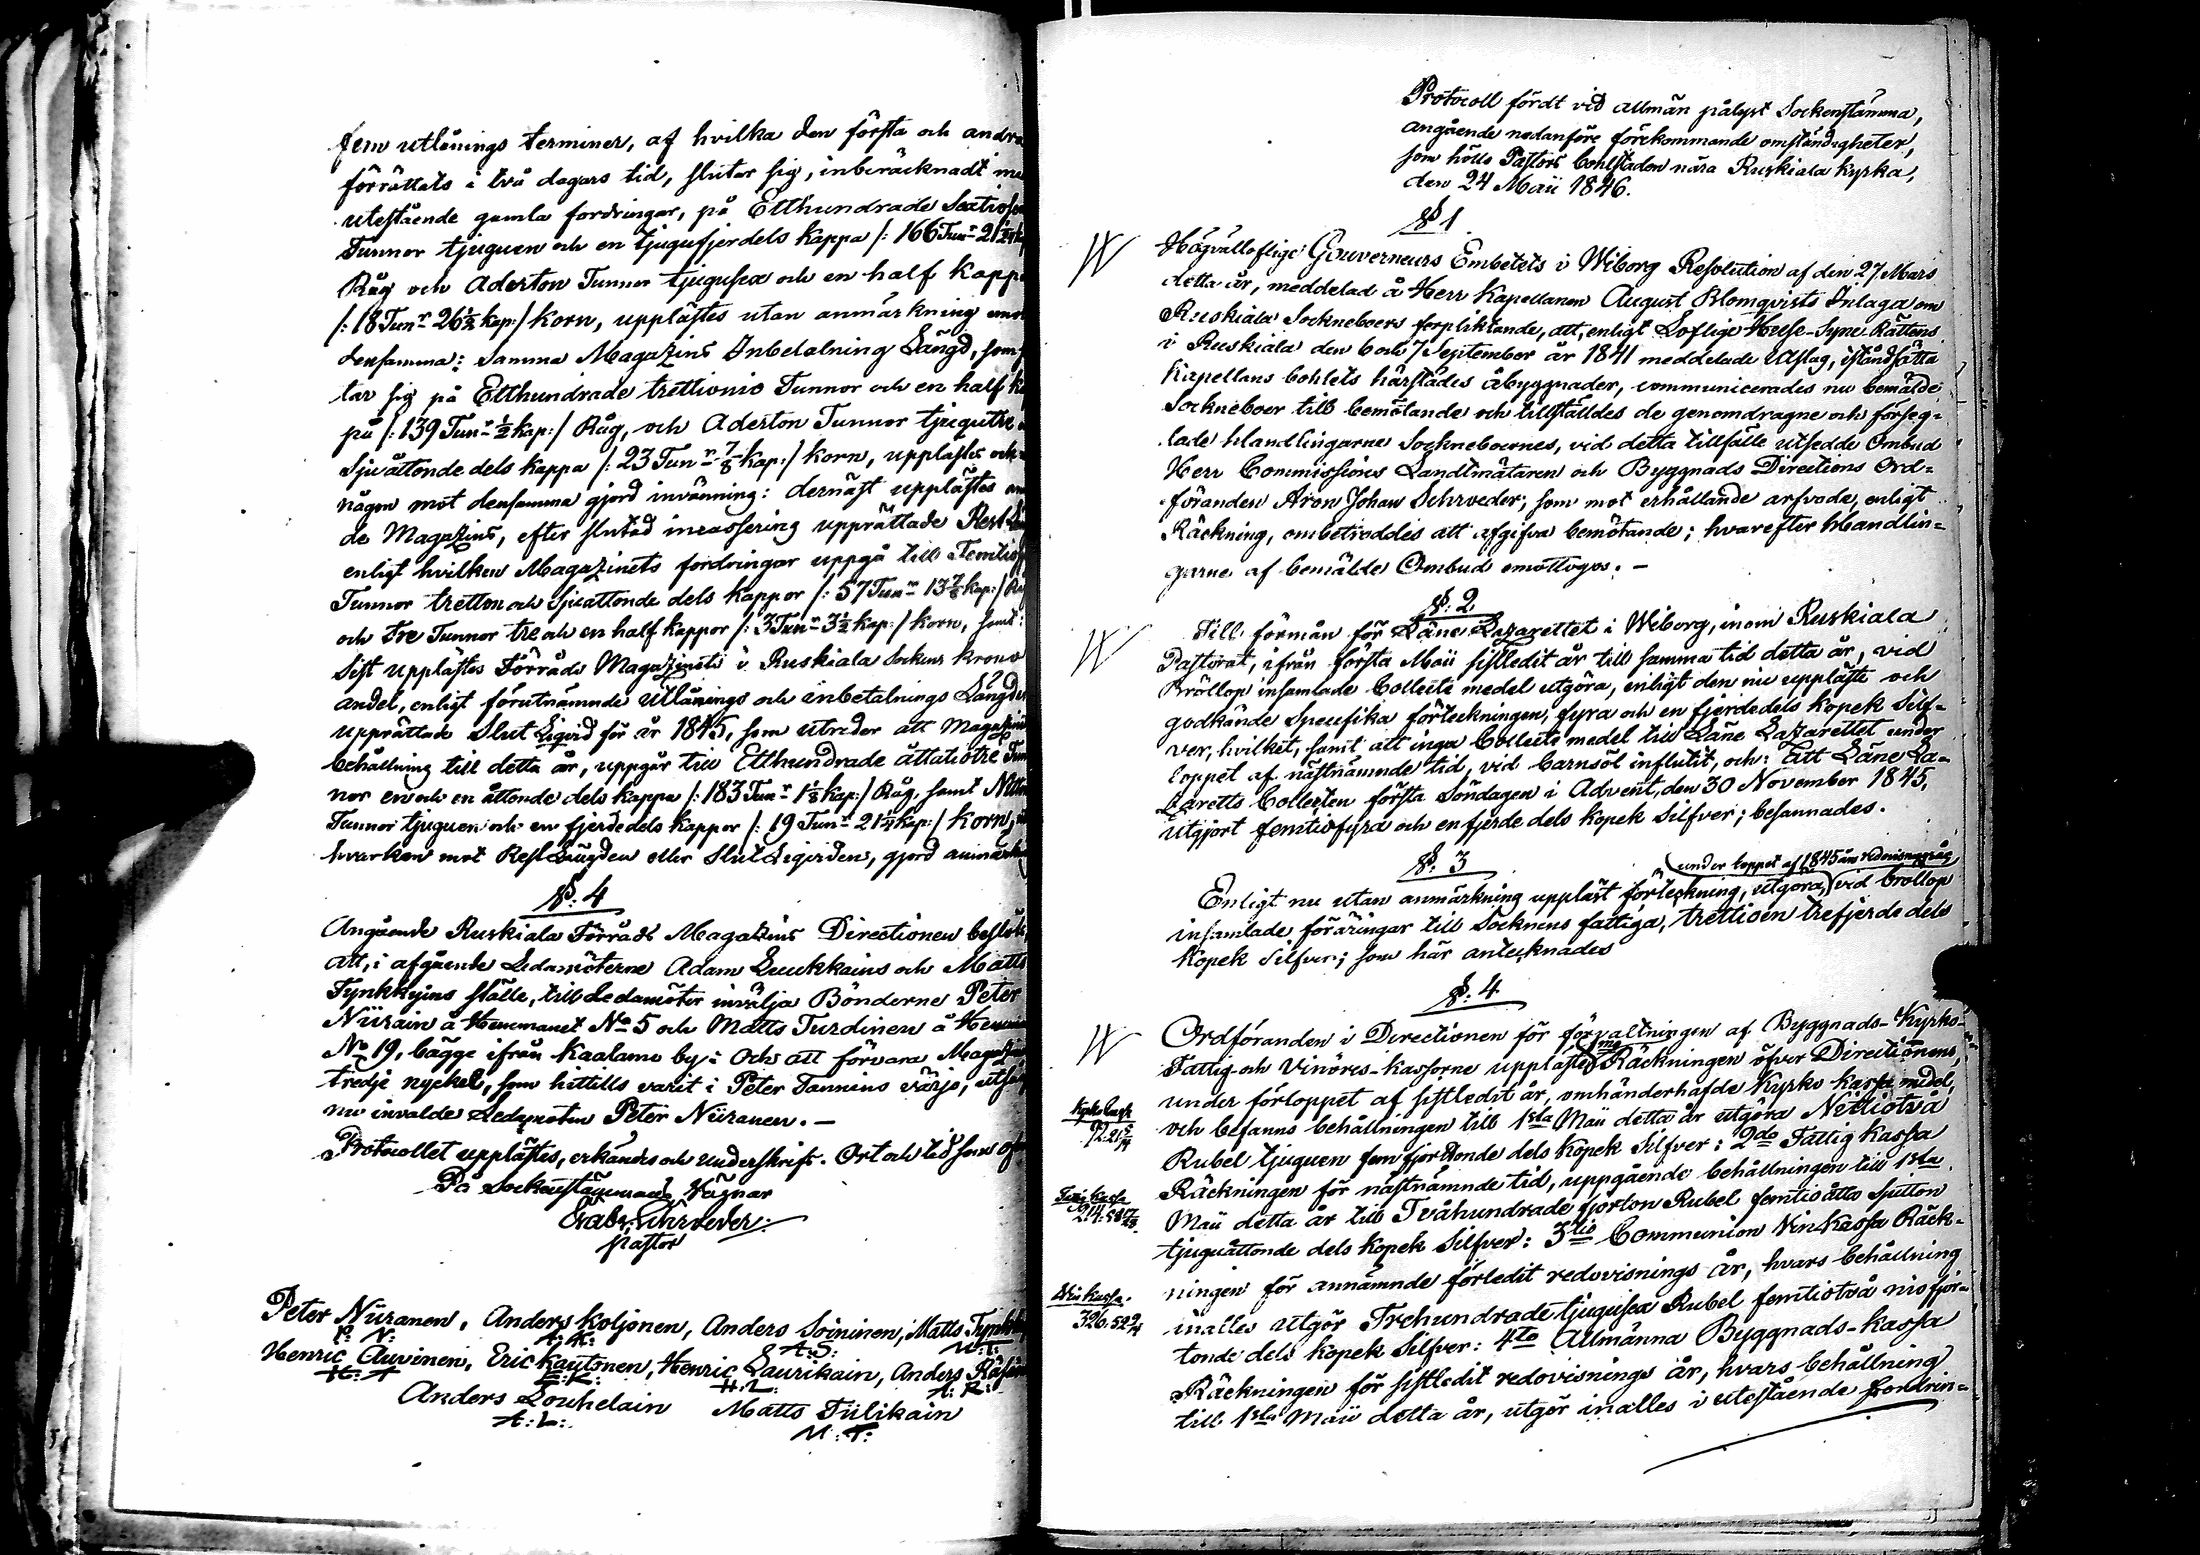 fem utlånings terminer, af hvilka den första och andra
förrättats i två dagars tid, slutar sig, inberäcknadt
utestående gamla fordringar, på Etthundrade Sextiosex
Tunnor tjuguen och en tjugufjerdels kappa /: 166 Tunr 21 1/24
Råg och Aderton Tunnor tjugusex och en half kapp
/: 18 Tunr 26 1/2 kap:/ korn, upplästes utan anmärkning
densamma: samma Magazins Inbetalning Längd, som
tar sig på Etthundrade trettionio Tunnor och en half
på /: 139 Tunr 1/2 kap:/ Råg, och Aderton Tunnor tjugutre
sjuåttonde dels kappa /: 23 Tunr 7/8 kap:/ korn, upplästes och
någon mot densamma gjord invänning: dernäst upplästes
de Magazins, efter slutad incassering upprättade Rest
enligt hvilken Magazinets fordringar uppgå till Femtio
Tunnor tretton och sjuåttonde dels kappor /: 57 Tunr 13 7/8 kap:/
och Tre Tunnor tre och en half kappor /: 3 Tunr 3 1/2 kap:/ korn, samt
sist upplästes Förråds Magazinets i Ruskiala Sockens krono
andel, enligt förutnämnde Utlånings och inbetalnings Längder
upprättade Slut Liqvid för år 1845, som utreder att Magazinets
behållning till detta år, uppgår till Etthundrade åttatiotre Tun
nor en och en åttonde dels kappa /: 183 Tunr 1 1/8 kap:/ Råg, samt Nitton
Tunnor tjuguen och en fjerdedels kappor /: 19 Tunr 21 1/4 kap:/ korn,
hvarken mot Rest Längden eller Slut Liqviden, gjord anmärkn
§: 4
Angående Ruskiala Förråds Magazins Directionen beslöts,
att, i afgående Ledamöterne Adam Leukkains och Matts
Tynkkyins ställe, till Ledamöter invälja Bönderne Peter
Niirain å Hemmanet No 5 och Matts Turdinen å Hemman
No 19, bägge ifrån Kaalamo by: Och att förvara Magazins
tredje nyckel, som hittills varit i Peter Tannins värjo,
nu invalde Ledamoten Peter Niiranen. –
Protocollet upplästes, erkändes och underskrifs. Ort och tid som
På Sockenstämmans Vägnar
Gabr. Schroeder:
Pastor
Peter Niiranen, Anders Koljonen, Anders Soininen, Matts
P: N: A: K: A: S: M: T:
Henric Auvinen, Eric Kautonen, Henric Laurikain, Anders
H: A E: K: H: L: A: R:
Anders Louhelain Matts Tiilikain
A: L: M: T:
Protocoll fördt vid allmän pålyst Sockenstämma,
angående nedanföre förekommande omständigheter,
som hölls Pastors Bohlstaden nära Ruskiala kyrka,
den 24 Maii 1846.
§ 1
Högvälloflige Gouverneurs Embetets i Wiborg Resolution af den 27 Mars
detta år, meddelad å Herr Kapellanen August Blomqvists Inlaga om
Ruskiala Sockneboers förpliktande, att, enligt Loflige Huse-Syne Rättens
i Ruskiala den 6 och 7 September år 1841 meddelade Utslag, iståndsätta
Kapellans Bohlets härstädes åbyggnader, communicerades nu bemälde
Sockneboer till bemötande och tillställdes de genomdragne och förseg=
lade Handlingarne Socknebornes, vid detta tillfälle utsedde Ombud
Herr Commissions Landtmätaren och Byggnads Directions Ord=
föranden Aron Johan Schroeder; som mot erhållande arfvode, enligt
Räckning, ombetroddes att afgifva bemötande; hvarefter Handlin=
garne af bemälde Ombud emottogos. –
§: 2
Till förmån för Läne Lazarettet i Wiborg, inom Ruskiala
Pastorat, ifrån första Maii sistledit år till samma tid detta år, vid
Bröllop insamlade Collects medel utgöra, enligt den nu uppläste och
godkände Specifika förteckningen, fyra och en fjerdedels kopek Silf=
ver, hvilket, samt att inga Collects medel till Läne Lazarettet under
loppet af nästnämnde tid, vid barnsöl influtit, och: Ett Läne La=
zaretts Collecten första Söndagen i Advent, den 30 November 1845,
utgjort femtiofyra och en fjerde dels kopek Silfver; besannades.
§: 3
under loppet af 1845 års redovisningsår
Enligt nu utan anmärkning uppläst förteckning, utgöra, vid bröllop
insamlade föräringar till Socknens fattiga, trettioen trefjerde dels
kopek Silfver; som här antecknades
§: 4
Ordföranden i Directionen för förvaltningen af Byggnads-Kyrko-
Fattig-och Vinöres-kassorne upplästes 1mo Räckningen öfver Directionens,
under förloppet af sistledit år, omhänderhafde kyrko kassa medel,
Kyrko Cassa
92: 21 5/14
och befanns behållningen till 1sta Maii detta år utgöra Nittiotvå
Rubel tjuguen fem fjortonde dels kopek Silfver: 2do Fattig kassa
Räckningen för nästnämnde tid, uppgående behållningen till 1sta
Fattig kassa
214: 58 17/28
Maii detta år till Tvåhundrade fjorton Rubel femtioåtta sjutton
tjuguåttonde dels kopek Silfver: 3tio Communion Vin Kassa Räck=
ningen för annämnde förledit redovisnings år, hvars behållning
Win kassa.
326: 52 9/14
inalles utgör Trehundrade tjugusex Rubel femtiotvå nio fjor=
tonde dels kopek Silfver: 4to Allmänna Byggnads-kassa
Räckningen för sistledit redovisnings år, hvars behållning
till 1sta Maii detta år, utgör inalles i utestående fordrin=